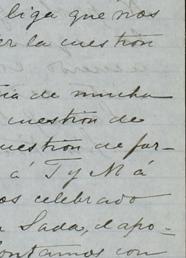 liga que nos
er la cuestión
ia de mucha
cuestion de
uestion de for-
á T y M á
os celebrado
Sada, d apo-
ontamos con